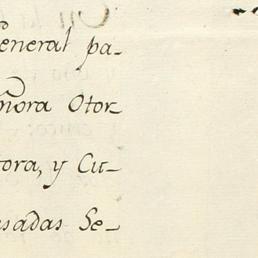 General pa-
ñora Otor
tora, y Cu-
sadas Se-